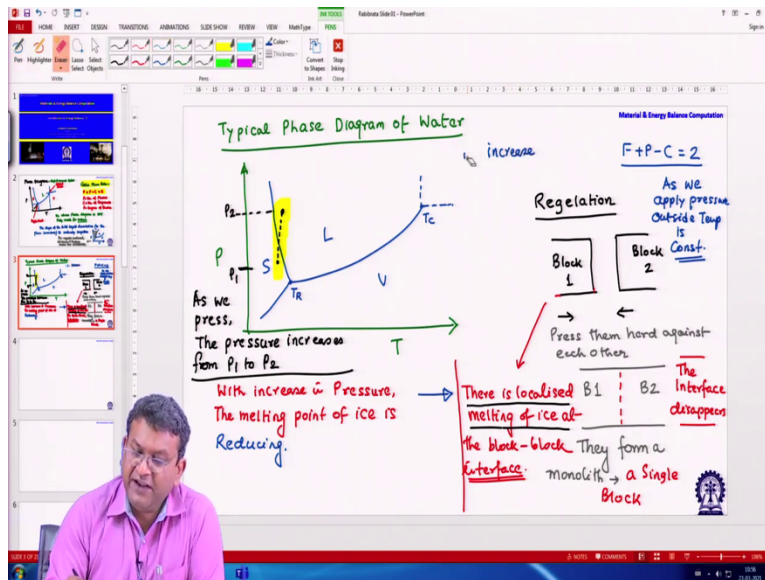 Rabibrata Slide 01 - PowerPoint
INK TOOLS
Sign in
FILE
HOME
INSERT
DESIGN
TRANSITIONS
ANIMATIONS
SLIDE SHOW
REVIEW
VIEW
MathType
PENS
Pen
Highlighter
Eraser
Lasso Select
Select Objects
Color
Thickness
Convert to Shapes
Stop Inking
Write
Pens
Ink Art
Close
Material & Energy Balance Computation
Typical Phase Diagram of Water
increase
F+P-C=2
As we
apply pressure
outside Temp
is
Const.
Regelation
Block
1
Block
2
Press them hard against
each other
P2
P
P1
S
L
V
TR
TC
T
As we
press,
The pressure increases
from P1 to P2
With increase in Pressure,
The melting point of ice is
Reducing.
There is localised
melting of ice at
the block-block
interface.
B1
B2
The
Interface
disappears
They form a
monolith → a Single
Block
1
2
3
4
5
6
NOTES
COMMENTS
10:56